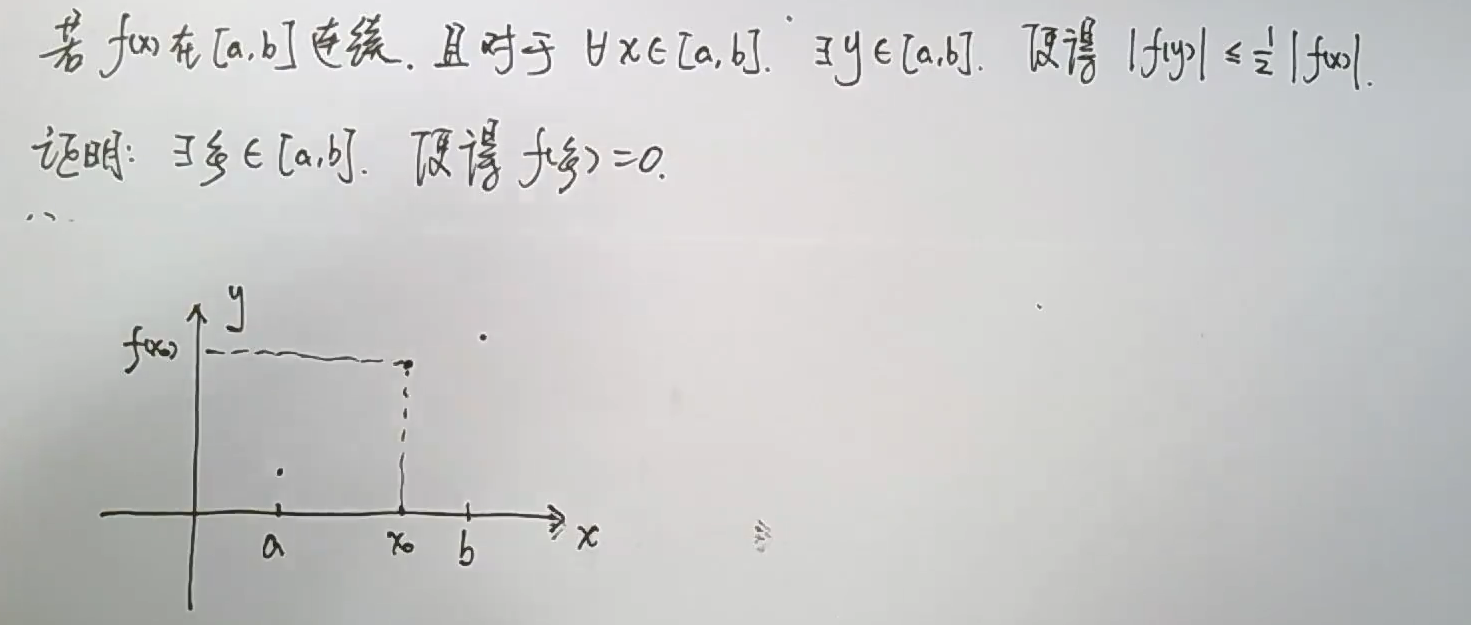 若 f(x) 在 [a,b] 连续. 且对于 ∀x∈[a,b]. ∃y∈[a,b]. 使得 |f(y)| ≤ 1/2 |f(x)|.
证明: ∃ξ∈[a,b]. 使得 f(ξ)=0.
y
f(x₀)
a x₀ b x